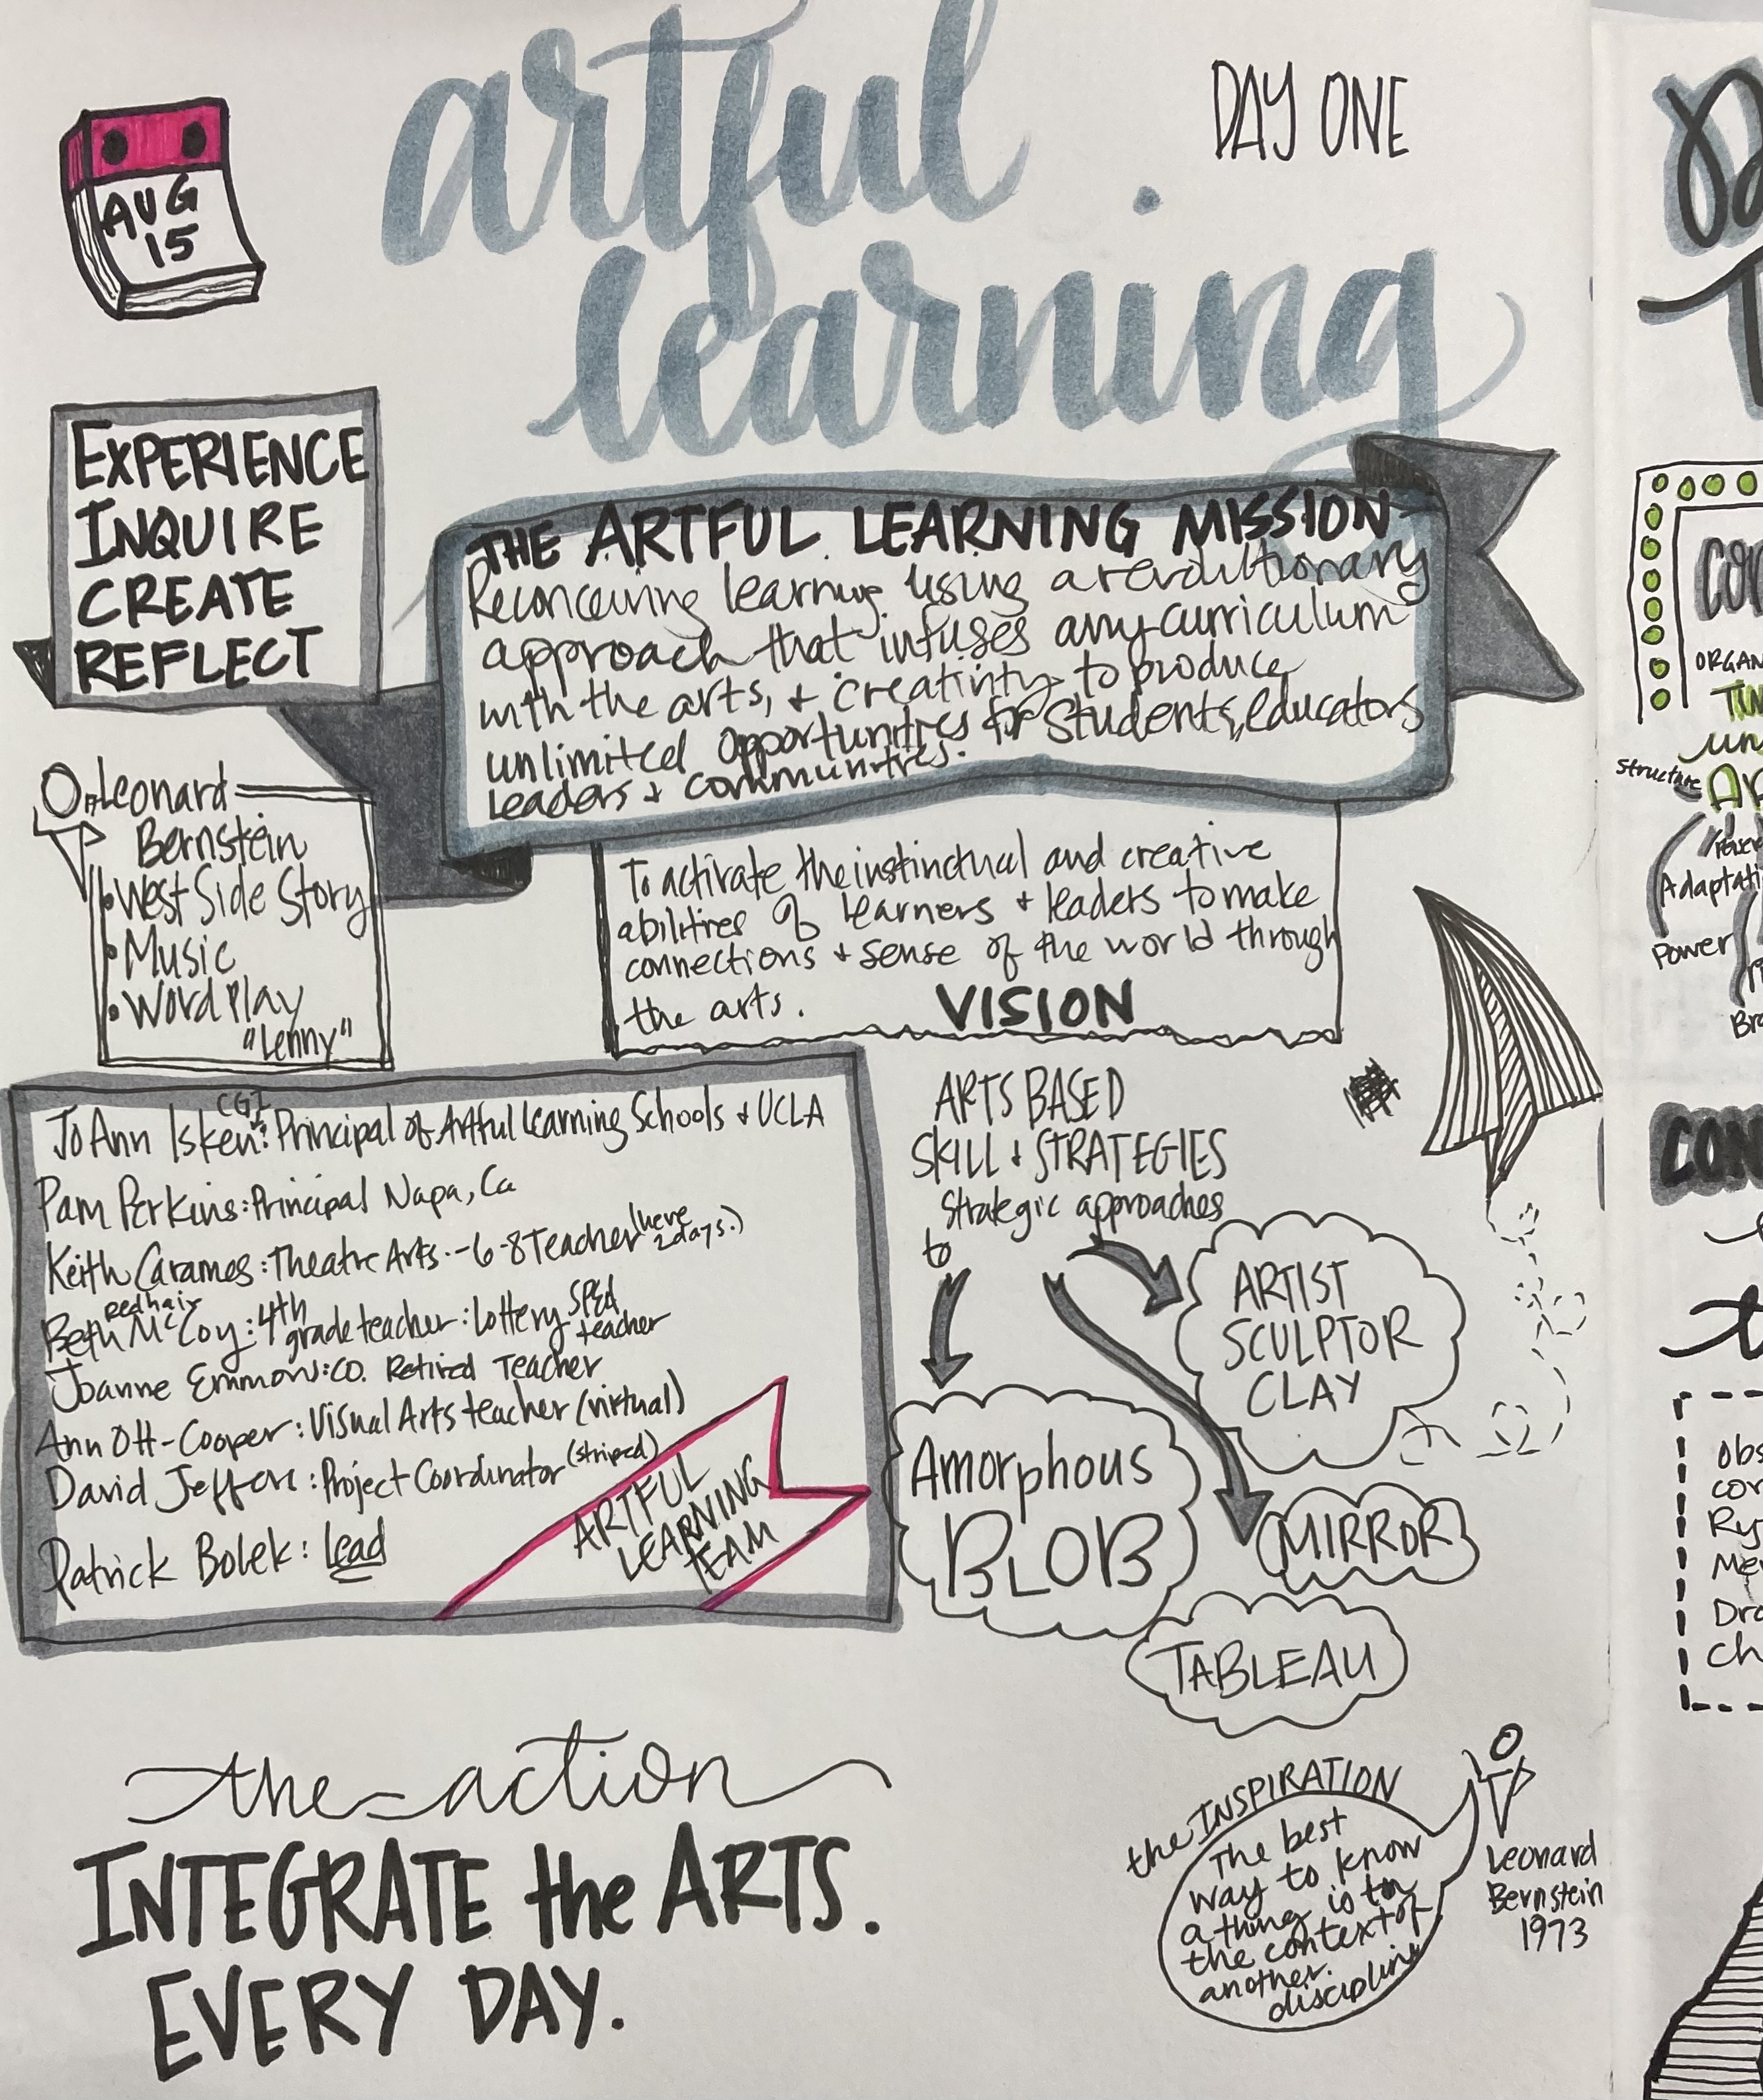 artful
learning
DAY ONE
AUG
15
EXPERIENCE
INQUIRE
CREATE
REFLECT
THE ARTFUL LEARNING MISSION
Reconceiving learning using a revolutionary
approach that infuses any curriculum
with the arts, + creativity to produce
unlimited opportunities for students, educators
leaders + communities.
Leonard
Bernstein
• West Side Story
• Music
• Word play
"Lenny"
To activate the instinctual and creative
abilities of learners + leaders to make
connections + sense of the world through
the arts.
VISION
CGI
JoAnn Isken: Principal of Artful Learning Schools + UCLA
Pam Perkins: Principal Napa, Ca
Keith Carames: Theatre Arts - 6-8 Teacher (here
2 days.)
red hair
Beth McCoy: 4th grade teacher: Lottery SPEd
teacher
Joanne Emmons: CO. Retired Teacher
Ann Ott-Cooper: Visual Arts teacher (virtual)
David Jeffers: Project Coordinator (striped)
Patrick Bolek: Lead
ARTFUL
LEARNING
TEAM
ARTS BASED
SKILL + STRATEGIES
Strategic approaches
to
ARTIST
SCULPTOR
CLAY
Amorphous
BLOB
MIRROR
TABLEAU
the action
INTEGRATE the ARTS.
EVERY DAY.
the INSPIRATION
The best
way to know
a thing is in
the context of
another
discipline
Leonard
Bernstein
1973
ORGAN
Structure
Adaptati
Power
Bra
CON
obs
cor
Ry
Me
Dra
Ch